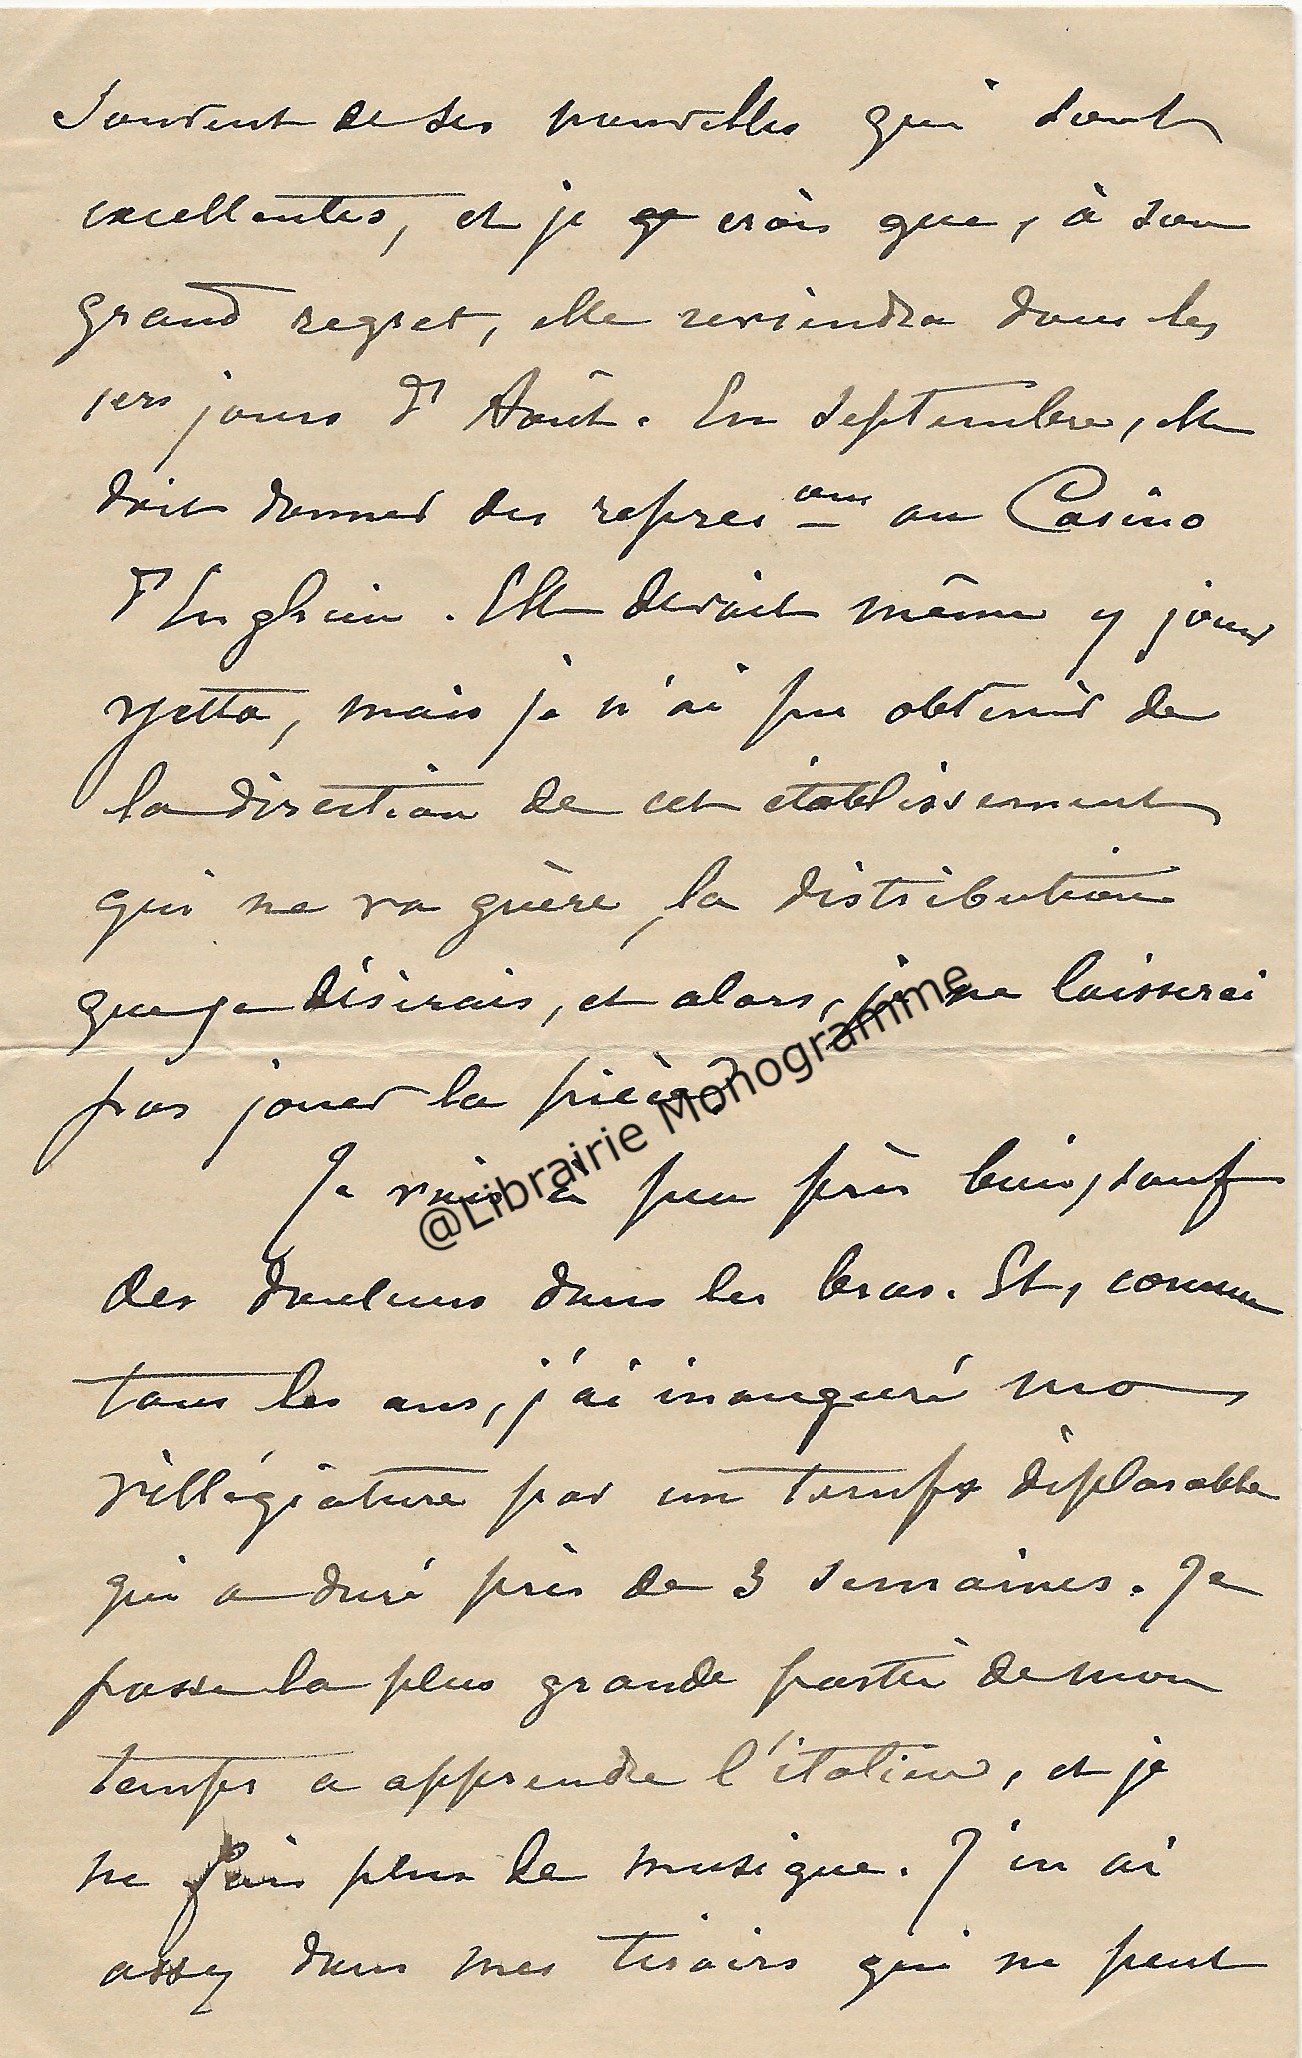 souvent de ses nouvelles qui sont
excellentes, et je crois que, à son
grand regret, elle reviendra dans les
1ers jours d'Août. En septembre, elle
doit donner des représ ons au Casino
d'Enghien. Elle devait même y jouer
Yetta, mais je n'ai pu obtenir de
la direction de cet établissement
qui ne va guère, la distribution
que je désirais, et alors, je ne laisserai
pas jouer la pièce.
Je vais à peu près bien, sauf
des douleurs dans les bras. Et, comme
tous les ans, j'ai inauguré ma
villégiature par un temps déplorable
qui a duré près de 3 semaines. Je
passe la plus grande partie de mon
temps a apprendre l'italien, et je
ne fais plus de musique. J'en ai
assez dans mes tiroirs qui ne peut
@Librairie Monogramme